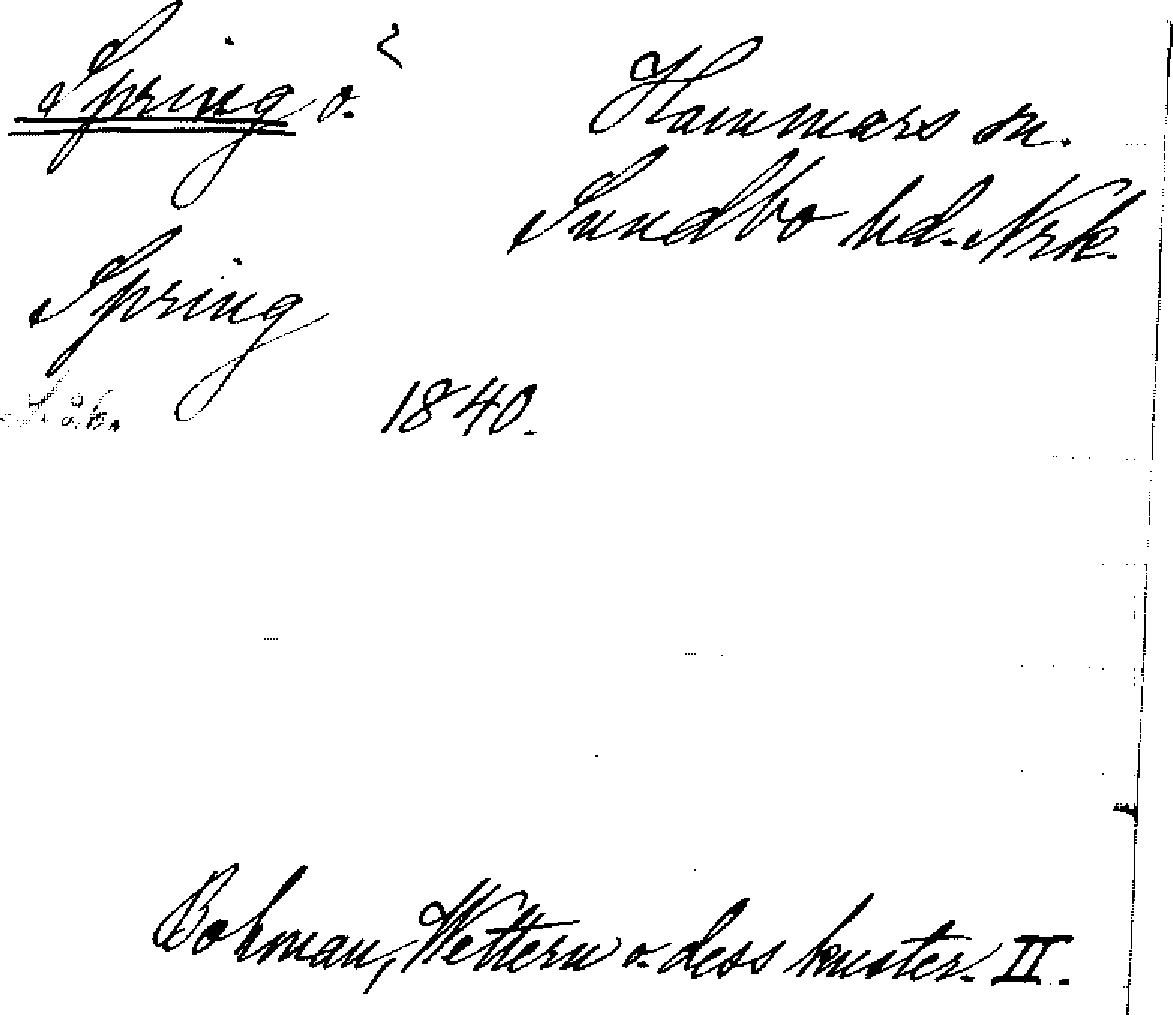 Spring o.
Hammars sn.
Sundbo hd. Nrk.
Spring
1840.
Bohman, Wettern o. dess kuster. II.